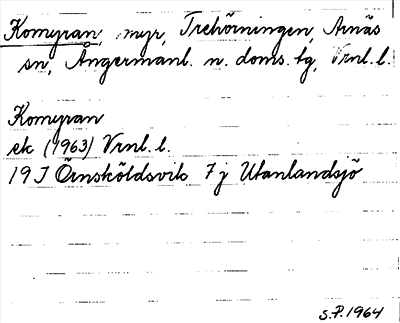 Komyran, myr, Trehörningen, Arnäs
sn, Ångermanl. n. doms. tg, Vrnl. l.
Komyran
ek (1963) Vrnl. l.
19 I Örnsköldsvik 7 j Utanlandsjö
S.P. 1964